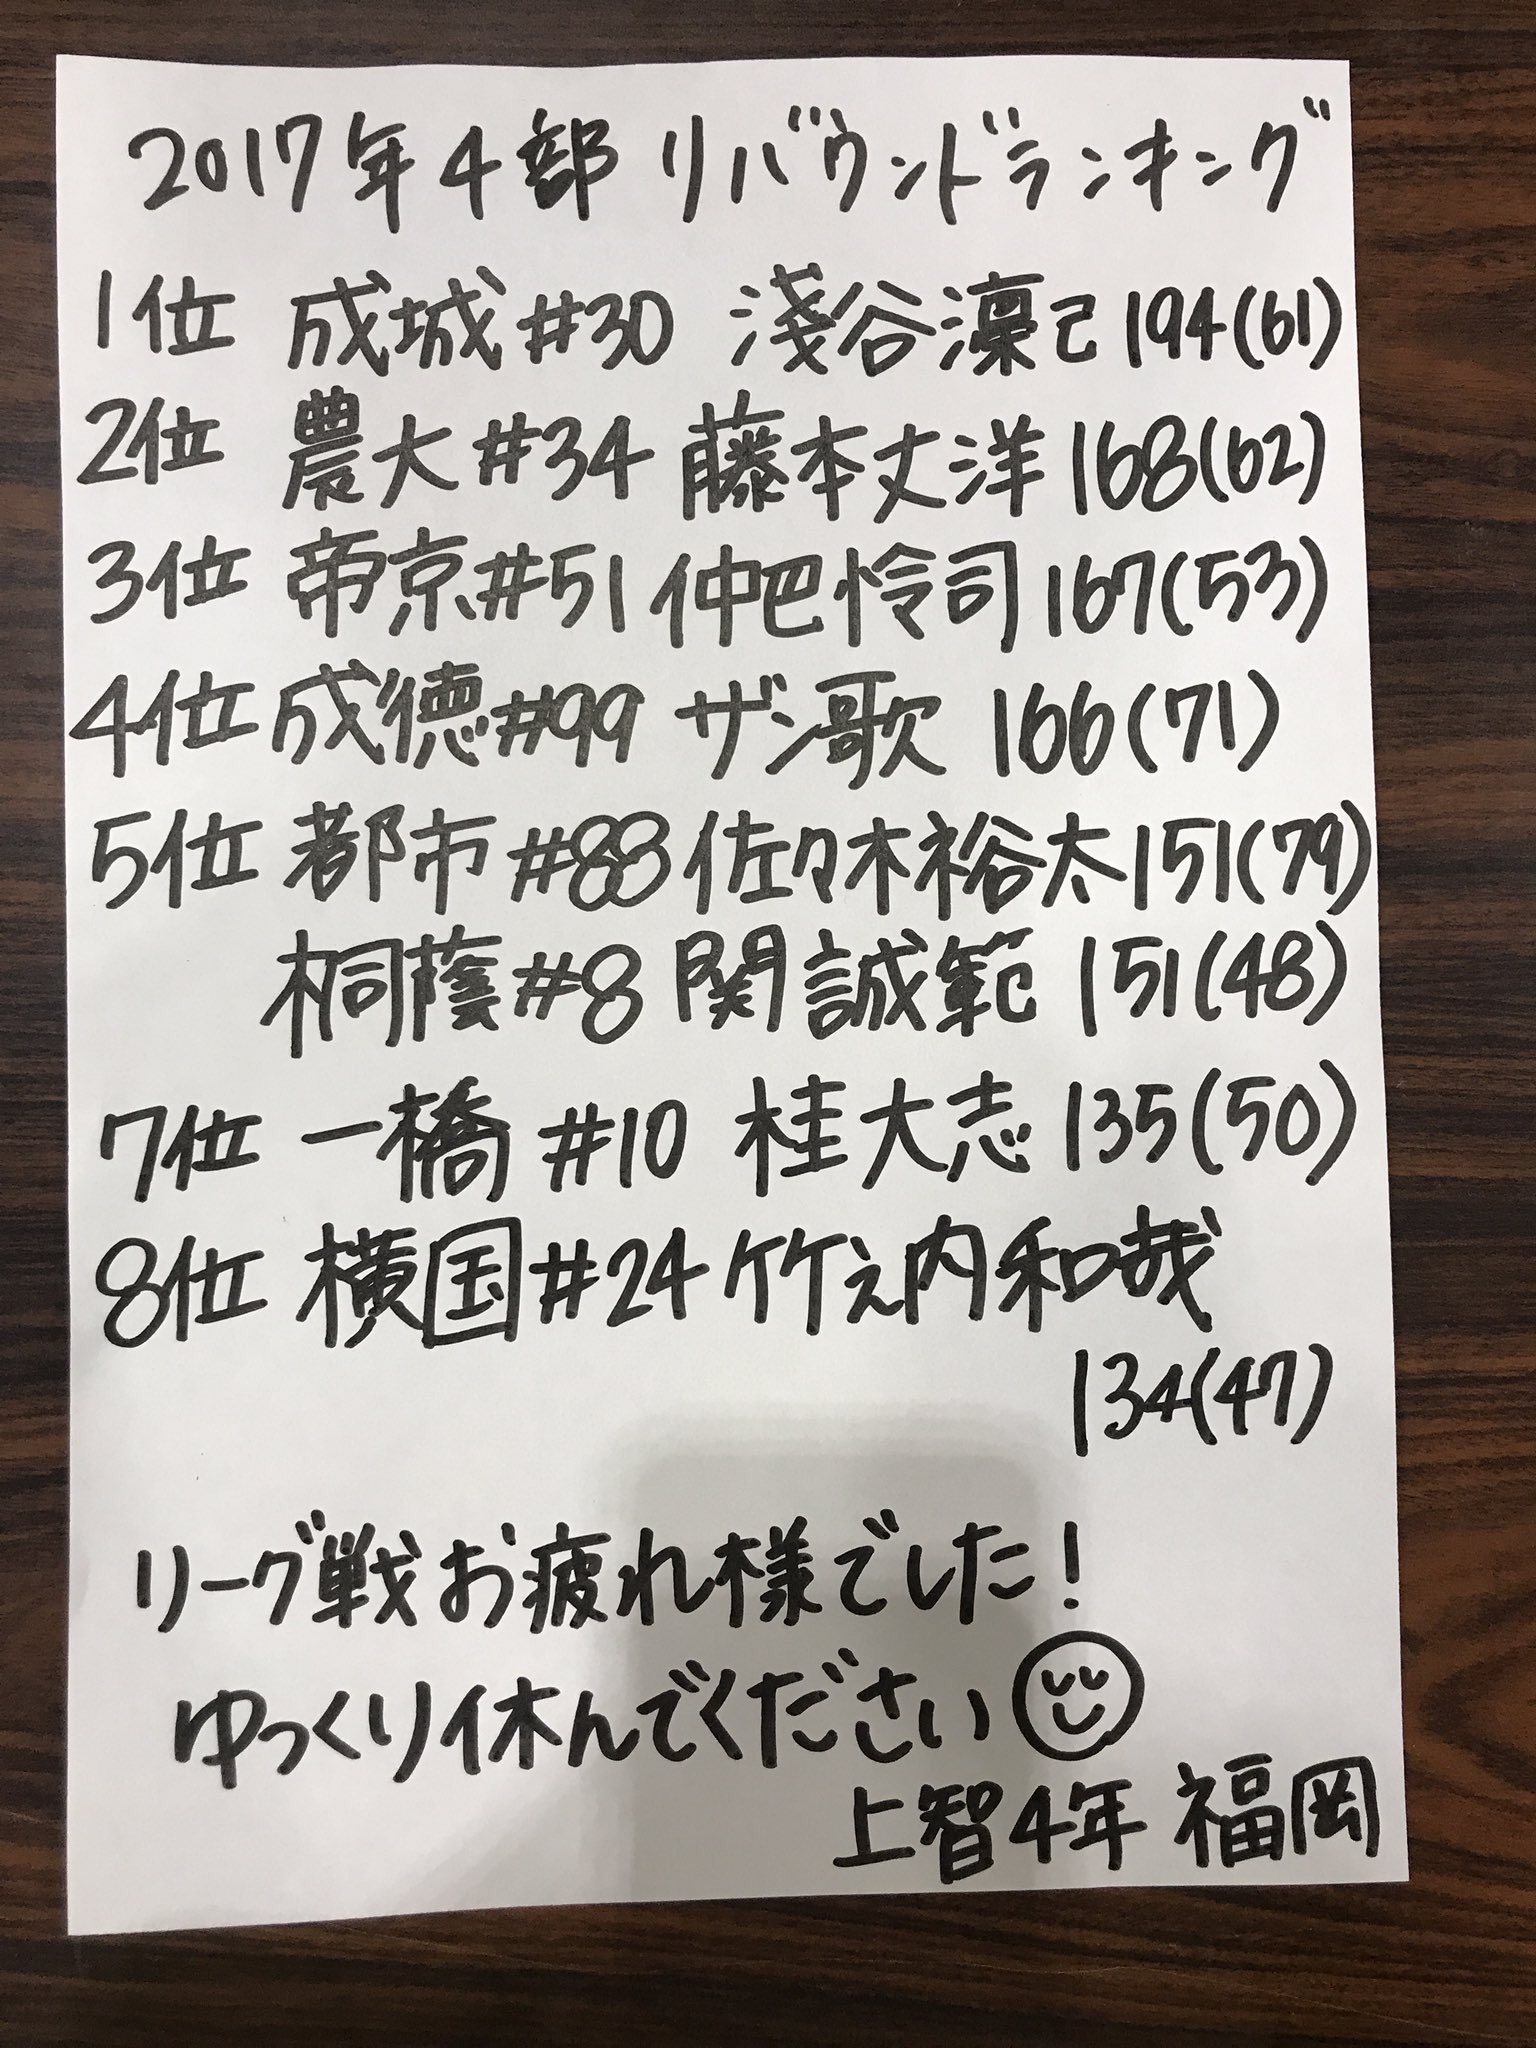 2017年4部 リバウンドランキング
1位 成城#30 淺谷凜己194(61)
2位 農大#34 藤本丈洋168(62)
3位 帝京#51 仲巴怜司167(53)
4位 成徳#99 ザン歌 166(71)
5位 都市#88佐々木裕太151(79)
桐蔭#8 関 誠範 151(48)
7位 一橋 #10 桂大志 135(50)
8位 横国#24竹之内和哉
134(47)
リーグ戦お疲れ様でした!
ゆっくり休んでください
上智4年 福岡